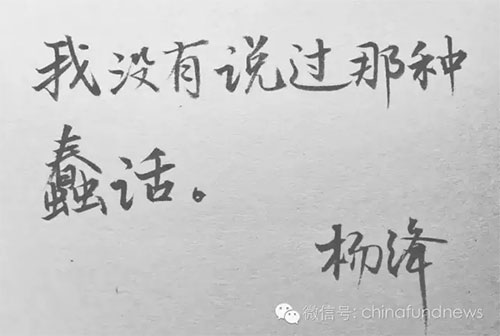 我没有说过那种
蠢话。
杨绛
微信号: chinafundnews